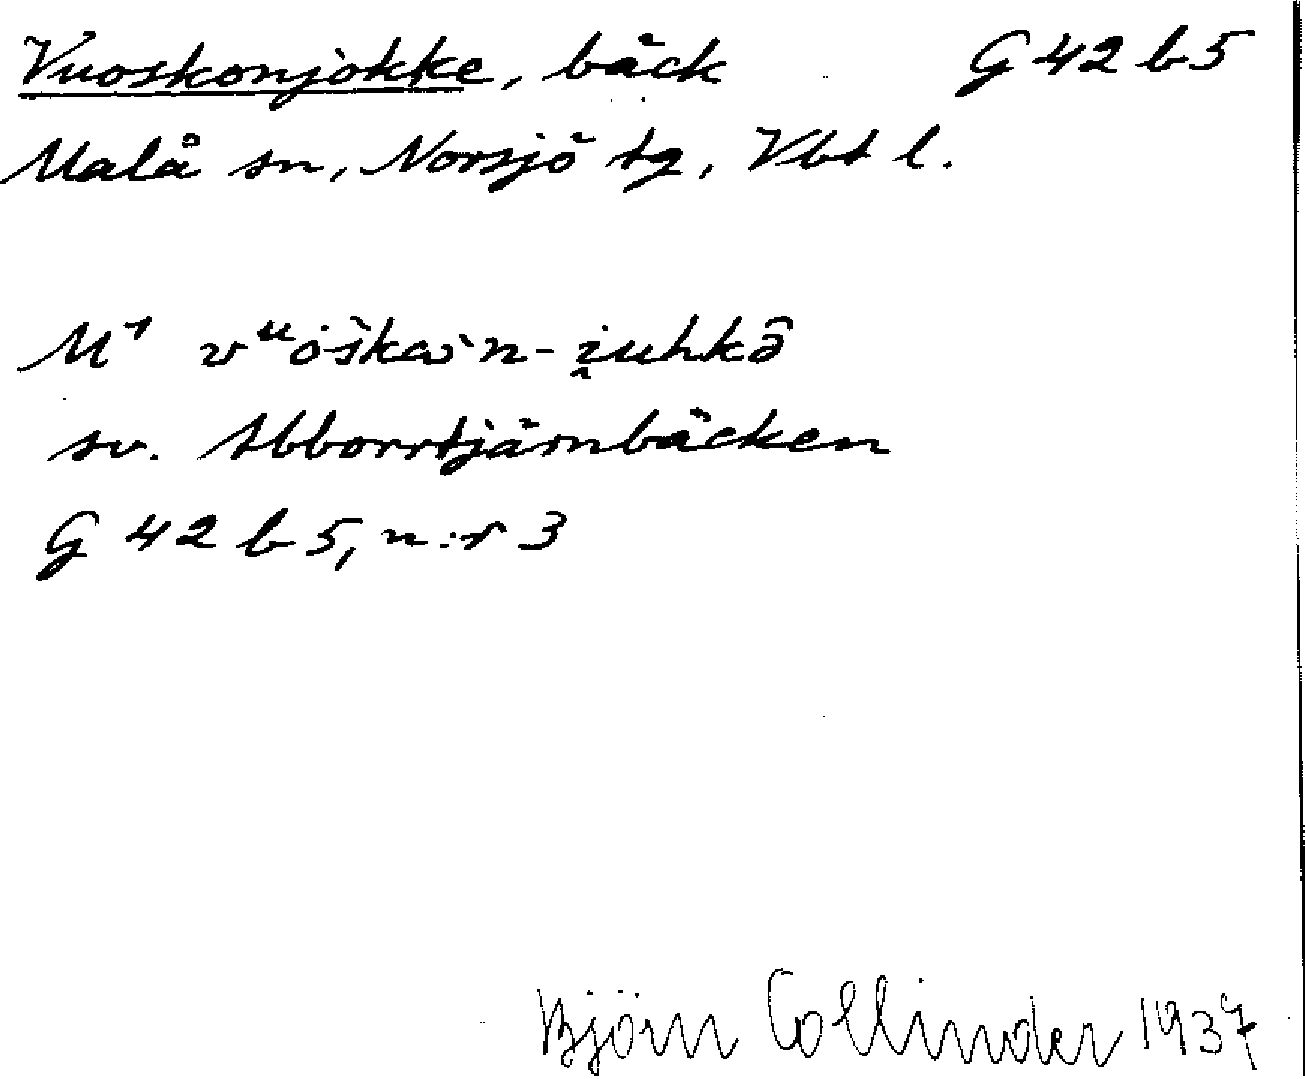 Vuoskonjokke, bäck G 42 b 5
Malå sn, Norsjö tg, Vbt l.
sv. Abborrtjärnbäcken
G 42 b 5, n:r 3
Björn Collinder 1937